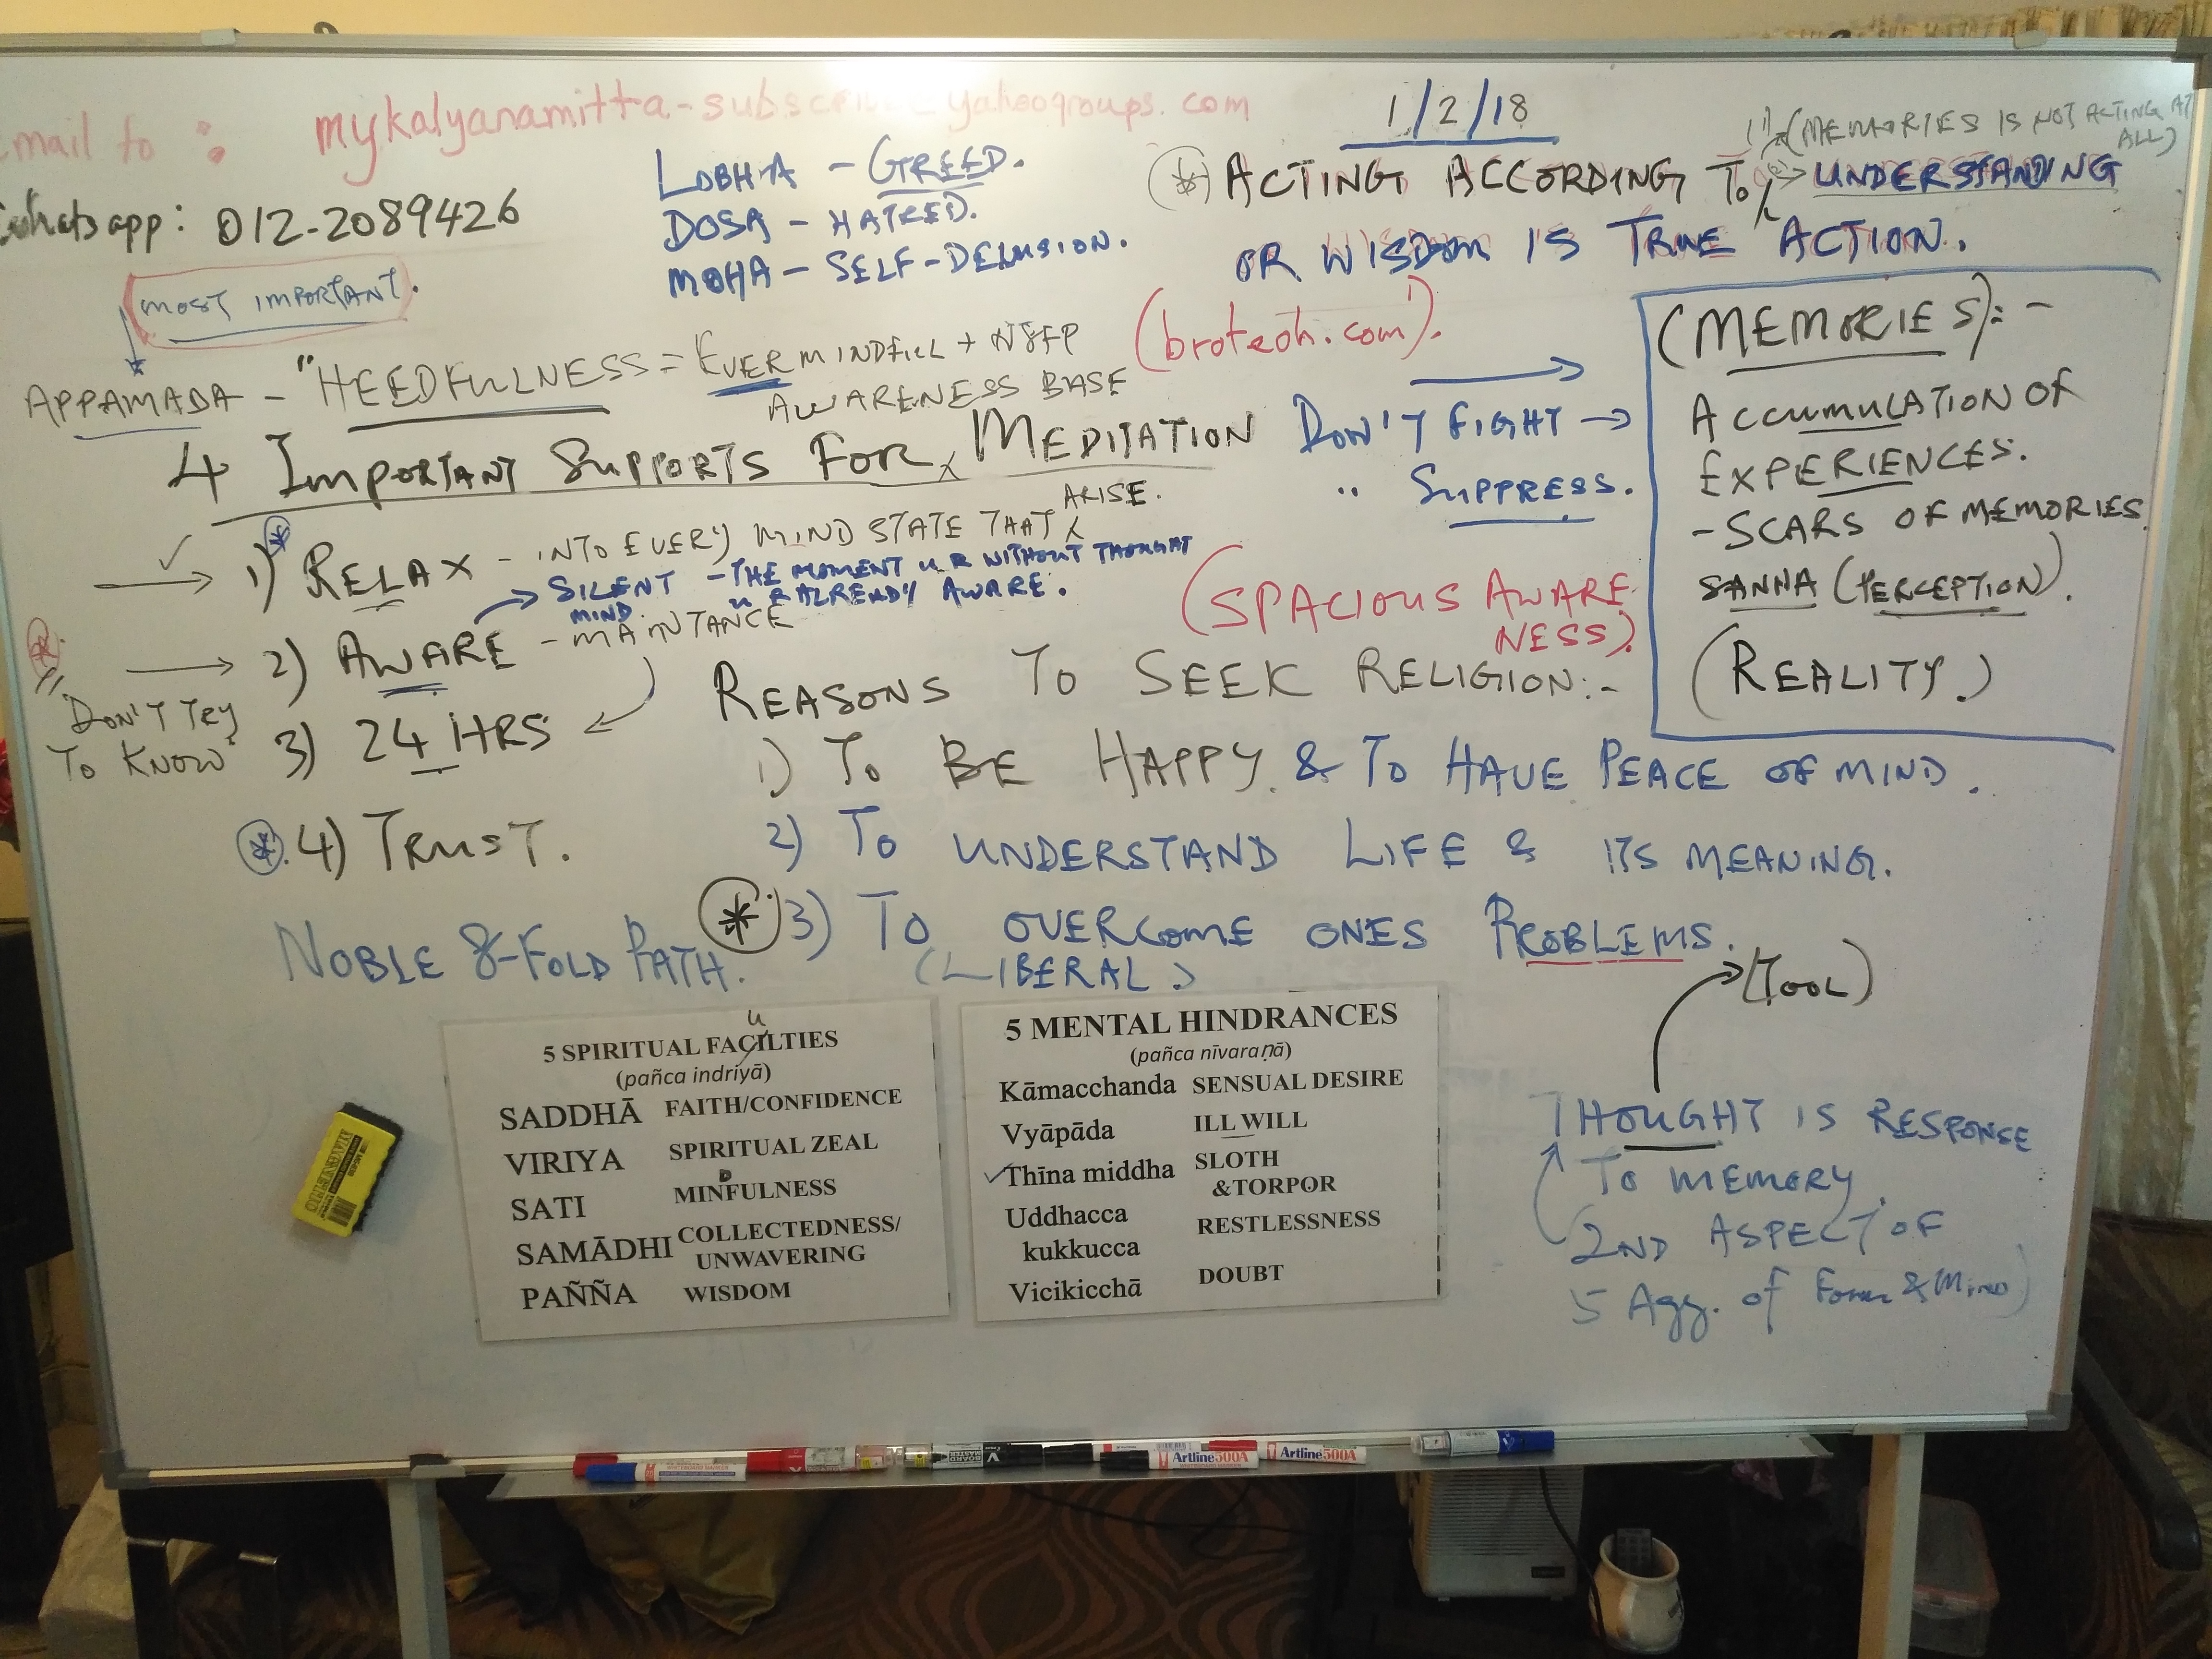 Email to : mykalyanamitta-subscribe@yahoogroups.com
whatsapp: 012-2089426
LOBHA - GREED.
DOSA - HATRED.
MOHA - SELF-DELUSION.
1/2/18
(MEMORIES IS NOT ACTING AT ALL)
ACTING ACCORDING TO UNDERSTANDING
OR WISDOM IS TRUE ACTION.
MOST IMPORTANT.
APPAMADA - "HEEDFULLNESS = EVER MINDFUL + N8FP
AWARENESS BASE
(broteoh.com).
4 IMPORTANT SUPPORTS FOR MEDITATION
DON'T FIGHT →
" SUPPRESS.
1) RELAX - INTO EVERY MIND STATE THAT ARISE.
SILENT MIND - THE MOMENT U R WITHOUT THOUGHT
U R ALREADY AWARE.
2) AWARE - MAINTANCE
"DON'T TRY
TO KNOW"
3) 24 HRS
4) TRUST.
(SPACIOUS AWARE
NESS).
(MEMORIES):-
ACCUMULATION OF
EXPERIENCES.
- SCARS OF MEMORIES
SANNA (PERCEPTION).
(REALITY.)
REASONS TO SEEK RELIGION:-
1) TO BE HAPPY. & TO HAVE PEACE OF MIND.
2) TO UNDERSTAND LIFE & ITS MEANING.
3) TO OVERCOME ONES PROBLEMS.
(LIBERAL)
NOBLE 8-FOLD PATH.
5 SPIRITUAL FACUILTIES
(pañca indriyā)
SADDHĀ FAITH/CONFIDENCE
VIRIYA SPIRITUAL ZEAL
SATI MINDFULNESS
SAMĀDHI COLLECTEDNESS/
UNWAVERING
PAÑÑA WISDOM
5 MENTAL HINDRANCES
(pañca nīvaraṇā)
Kāmacchanda SENSUAL DESIRE
Vyāpāda ILL WILL
Thīna middha SLOTH
&TORPOR
Uddhacca RESTLESSNESS
kukkucca
Vicikicchā DOUBT
(TOOL)
THOUGHT IS RESPONSE
TO MEMORY.
2ND ASPECT OF
5 Agg. of Form & Mind)
Artline 500A
Artline 500A